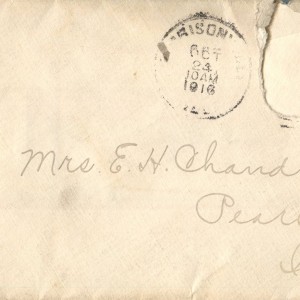 OCT
24
10AM
1916
Mrs. E. H. Chand
Pear